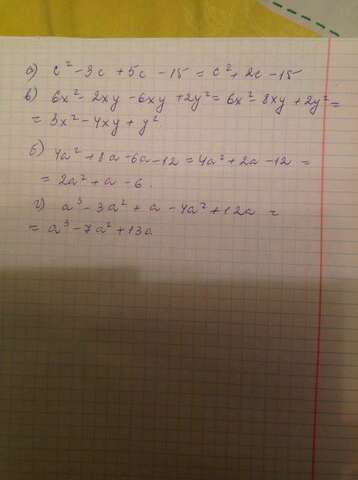 а) c² - 3c + 5c - 15 = c² + 2c - 15
в) 6x² - 2xy - 6xy + 2y² = 6x² - 8xy + 2y² =
= 3x² - 4xy + y²
б) 4a² + 8a - 6a - 12 = 4a² + 2a - 12 =
= 2a² + a - 6.
г) a³ - 3a² + a - 4a² + 12a =
= a³ - 7a² + 13a